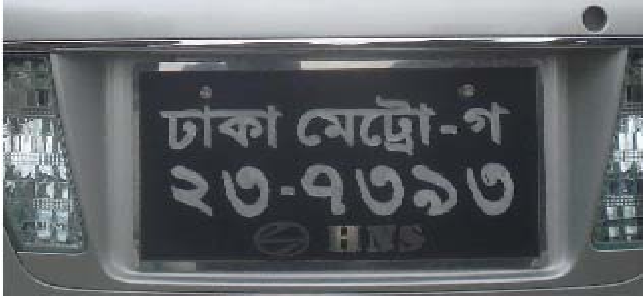 ঢাকা মেট্রো-গ
২৩-৭৩৯৩
HNS